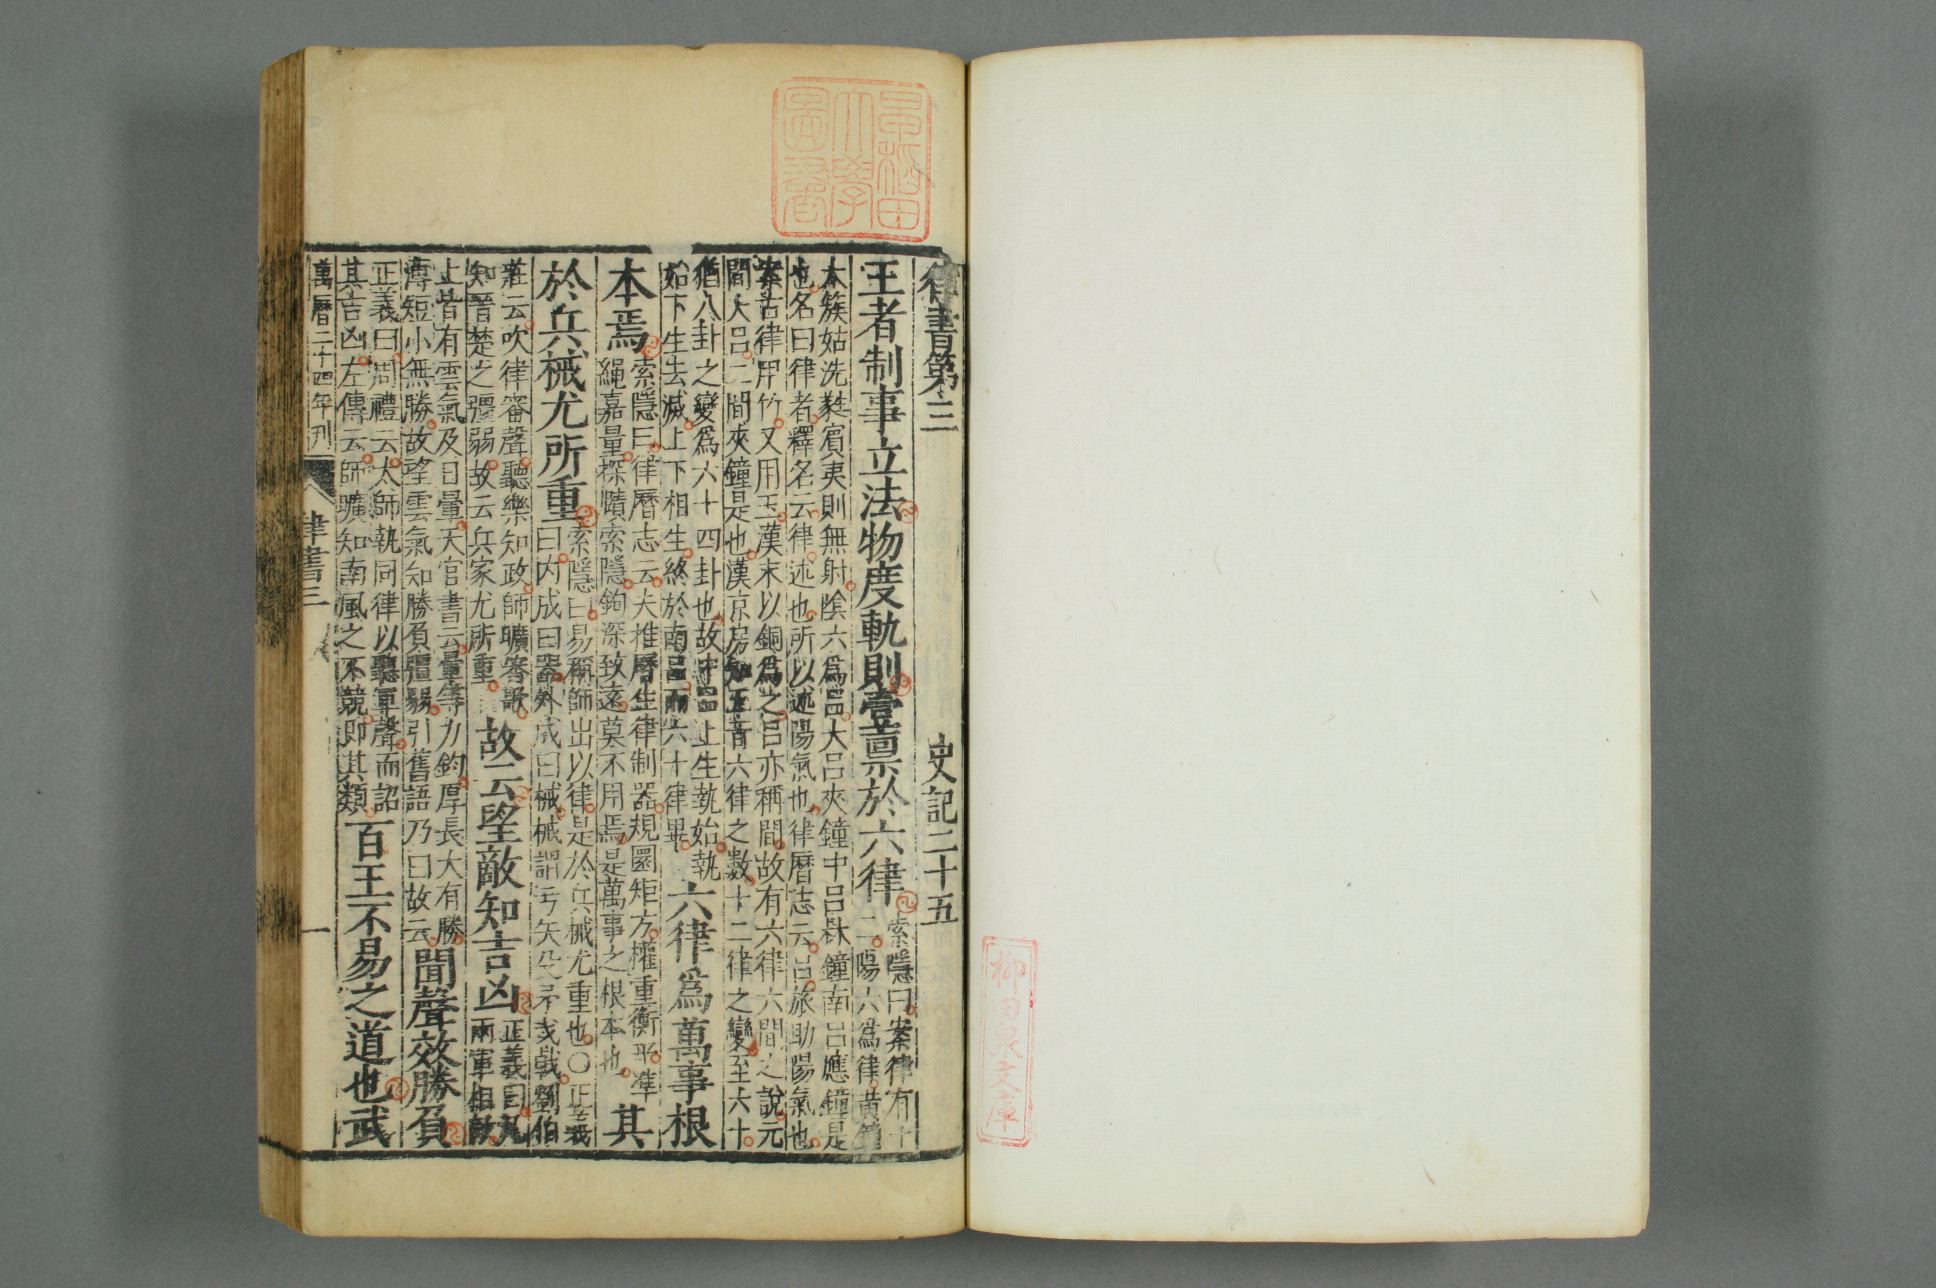 律書第三 史記二十五
王者制事立法物度軌則壹禀於六律
索隱曰案律有十
二陽六爲律黃鍾
太簇姑洗蕤賓夷則無射陰六爲呂大呂夾鐘中呂林鐘南呂應鐘是
也名曰律者釋名云律述也所以述陽氣也律曆志云呂旅助陽氣也
案古律用竹又用玉漢末以銅爲之呂亦稱間故有六律六間之說元
間大呂二間夾鐘是也漢京房知五音六律之數十二律之變至六十
猶八卦之變爲六十四卦也故中呂上生執始執
始下生去滅上下相生終於南呂而六十律畢
六律爲萬事根
本焉
索隱曰律曆志云夫推曆生律制器規圜矩方權重衡平準
繩嘉量探賾索隱鉤深致遠莫不用焉是萬事之根本也
其
於兵械尤所重
索隱曰易稱師出以律是於兵械尤重也〇正義
曰內成曰器外成曰械械謂弓矢殳矛戈戟劉伯
莊云吹律審聲聽樂知政師曠審歌
知晋楚之彊弱故云兵家尤所重
故云望敵知吉凶
正義曰凡
兩軍相敵
上皆有雲氣及日暈天官書云暈等力鈞厚長大有勝
薄短小無勝故望雲氣知勝負彊弱引舊語乃曰故云
聞聲效勝負
正義曰周禮云太師執同律以聽軍聲而詔
其吉凶左傳云師曠知南風之不競即其類
百王不易之道也武
萬曆二十四年刊 律書三 一
早稻田大學圖書
柳田泉文庫